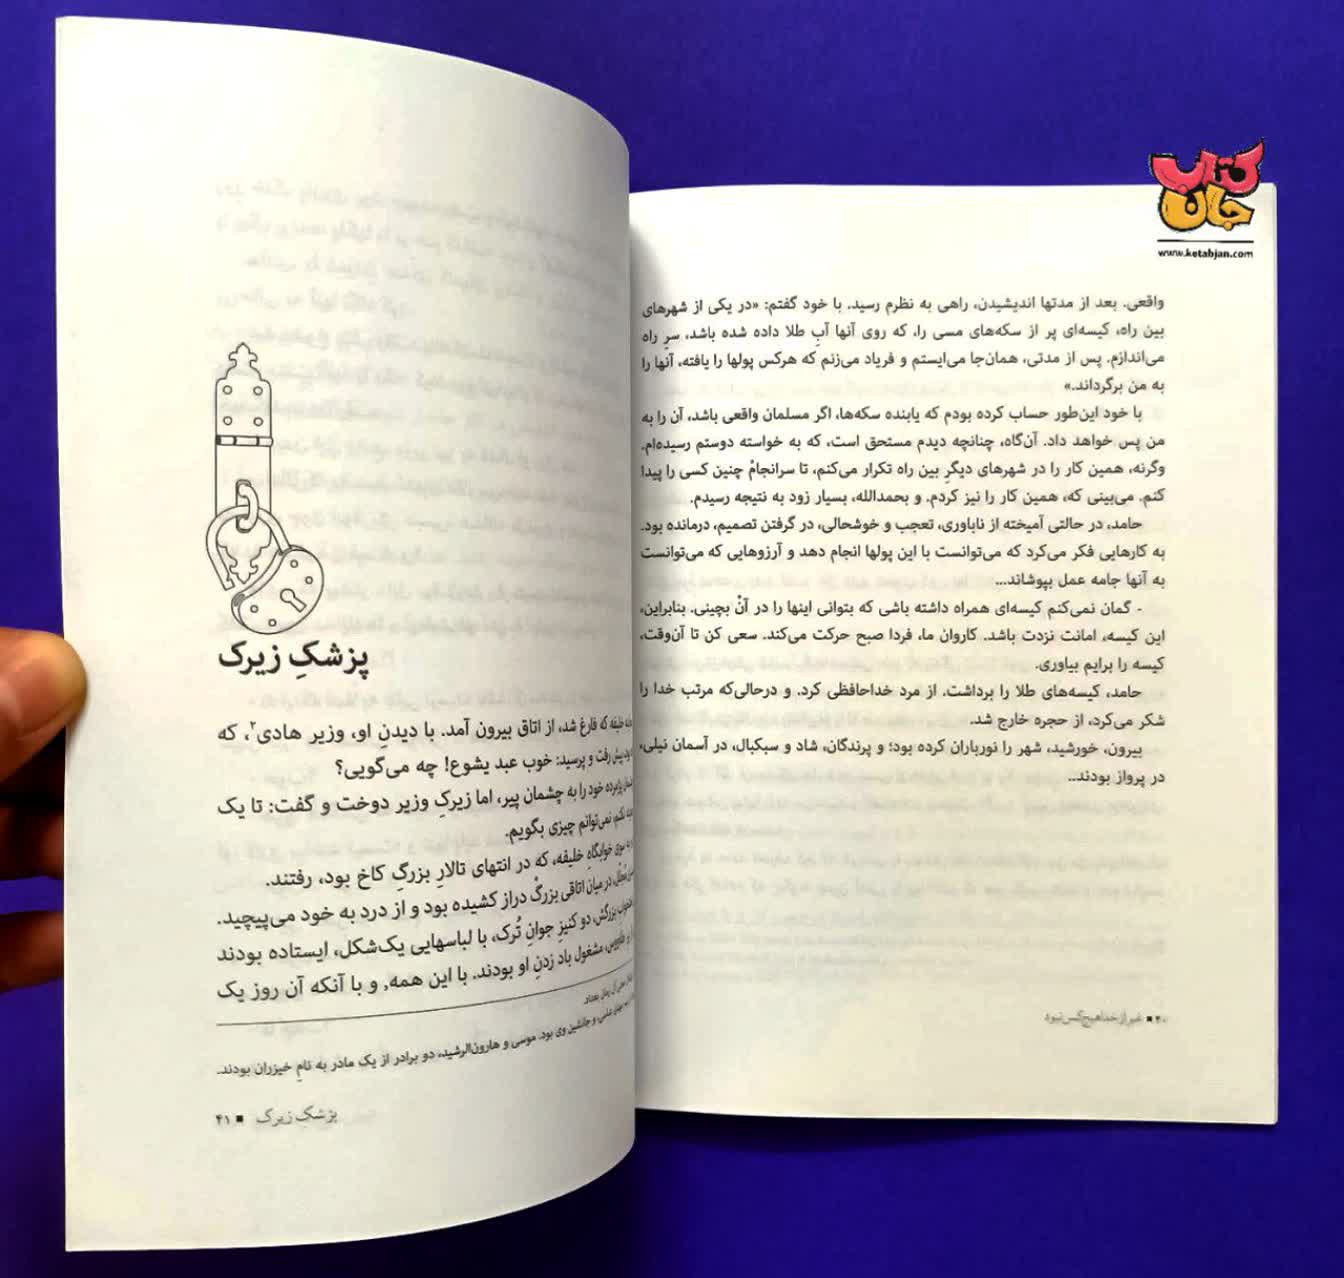 کتاب
جان
www.ketabjan.com
واقعی. بعد از مدتها اندیشیدن، راهی به نظرم رسید. با خود گفتم: «در یکی از شهرهای
بین راه، کیسه‌ای پر از سکه‌های مسی را، که روی آنها آبِ طلا داده شده باشد، سرِ راه
می‌اندازم. پس از مدتی، همان‌جا می‌ایستم و فریاد می‌زنم که هرکس پولها را یافته، آنها را
به من برگرداند.»
با خود این‌طور حساب کرده بودم که یابنده سکه‌ها، اگر مسلمان واقعی باشد، آن را به
من پس خواهد داد. آن‌گاه، چنانچه دیدم مستحق است، که به خواسته دوستم رسیده‌ام.
وگرنه، همین کار را در شهرهای دیگرِ بین راه تکرار می‌کنم، تا سرانجامْ چنین کسی را پیدا
کنم. می‌بینی که، همین کار را نیز کردم. و بحمدالله، بسیار زود به نتیجه رسیدم.
حامد، در حالتی آمیخته از ناباوری، تعجب و خوشحالی، در گرفتن تصمیم، درمانده بود.
به کارهایی فکر می‌کرد که می‌توانست با این پولها انجام دهد و آرزوهایی که می‌توانست
به آنها جامه عمل بپوشاند...
- گمان نمی‌کنم کیسه‌ای همراه داشته باشی که بتوانی اینها را در آنْ بچینی. بنابراین،
این کیسه، امانت نزدت باشد. کاروان ما، فردا صبح حرکت می‌کند. سعی کن تا آن‌وقت،
کیسه را برایم بیاوری.
حامد، کیسه‌های طلا را برداشت. از مرد خداحافظی کرد. و درحالی‌که مرتب خدا را
شکر می‌کرد، از حجره خارج شد.
بیرون، خورشید، شهر را نورباران کرده بود؛ و پرندگان، شاد و سبکبال، در آسمان نیلی،
در پرواز بودند..
۴۰ ■ غیر از خدا هیچ‌کس نبود
پزشکِ زیرک
خلیفه که فارغ شد، از اتاق بیرون آمد. با دیدنِ او، وزیر هادی۲، که
پیش رفت و پرسید: خوب عبد یشوع! چه می‌گویی؟
پژمرده خود را به چشمان پیر، اما زیرکِ وزیر دوخت و گفت: تا یک
نکنم، نمی‌توانم چیزی بگویم.
سوی خوابگاهِ خلیفه، که در انتهای تالارِ بزرگِ کاخ بود، رفتند.
در میان اتاقی بزرگْ دراز کشیده بود و از درد به خود می‌پیچید.
بزرگش، دو کنیزِ جوانِ تُرک، با لباسهایی یک‌شکل، ایستاده بودند
مشغول باد زدنِ او بودند. با این همه, و با آنکه آن روز یک
بغداد.
عباسی، و جانشین وی بود. موسی و هارون‌الرشید، دو برادر از یک مادر به نامِ خیزران بودند.
پزشکِ زیرک ■ ۴۱